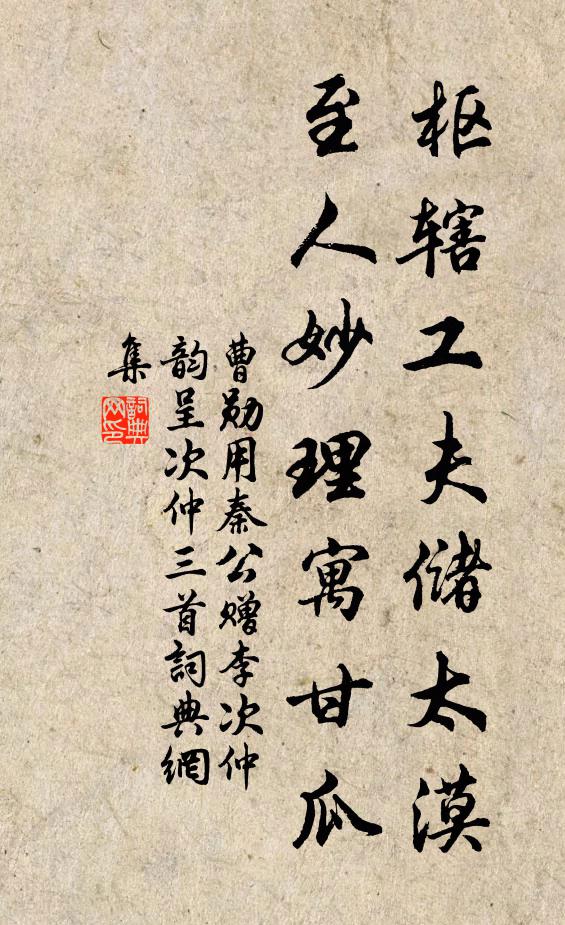 枢辖工夫储太漠
至人妙理寓甘瓜
曹勋用秦公赠李次仲
韵呈次仲三首詞典網
集
詞典
网印